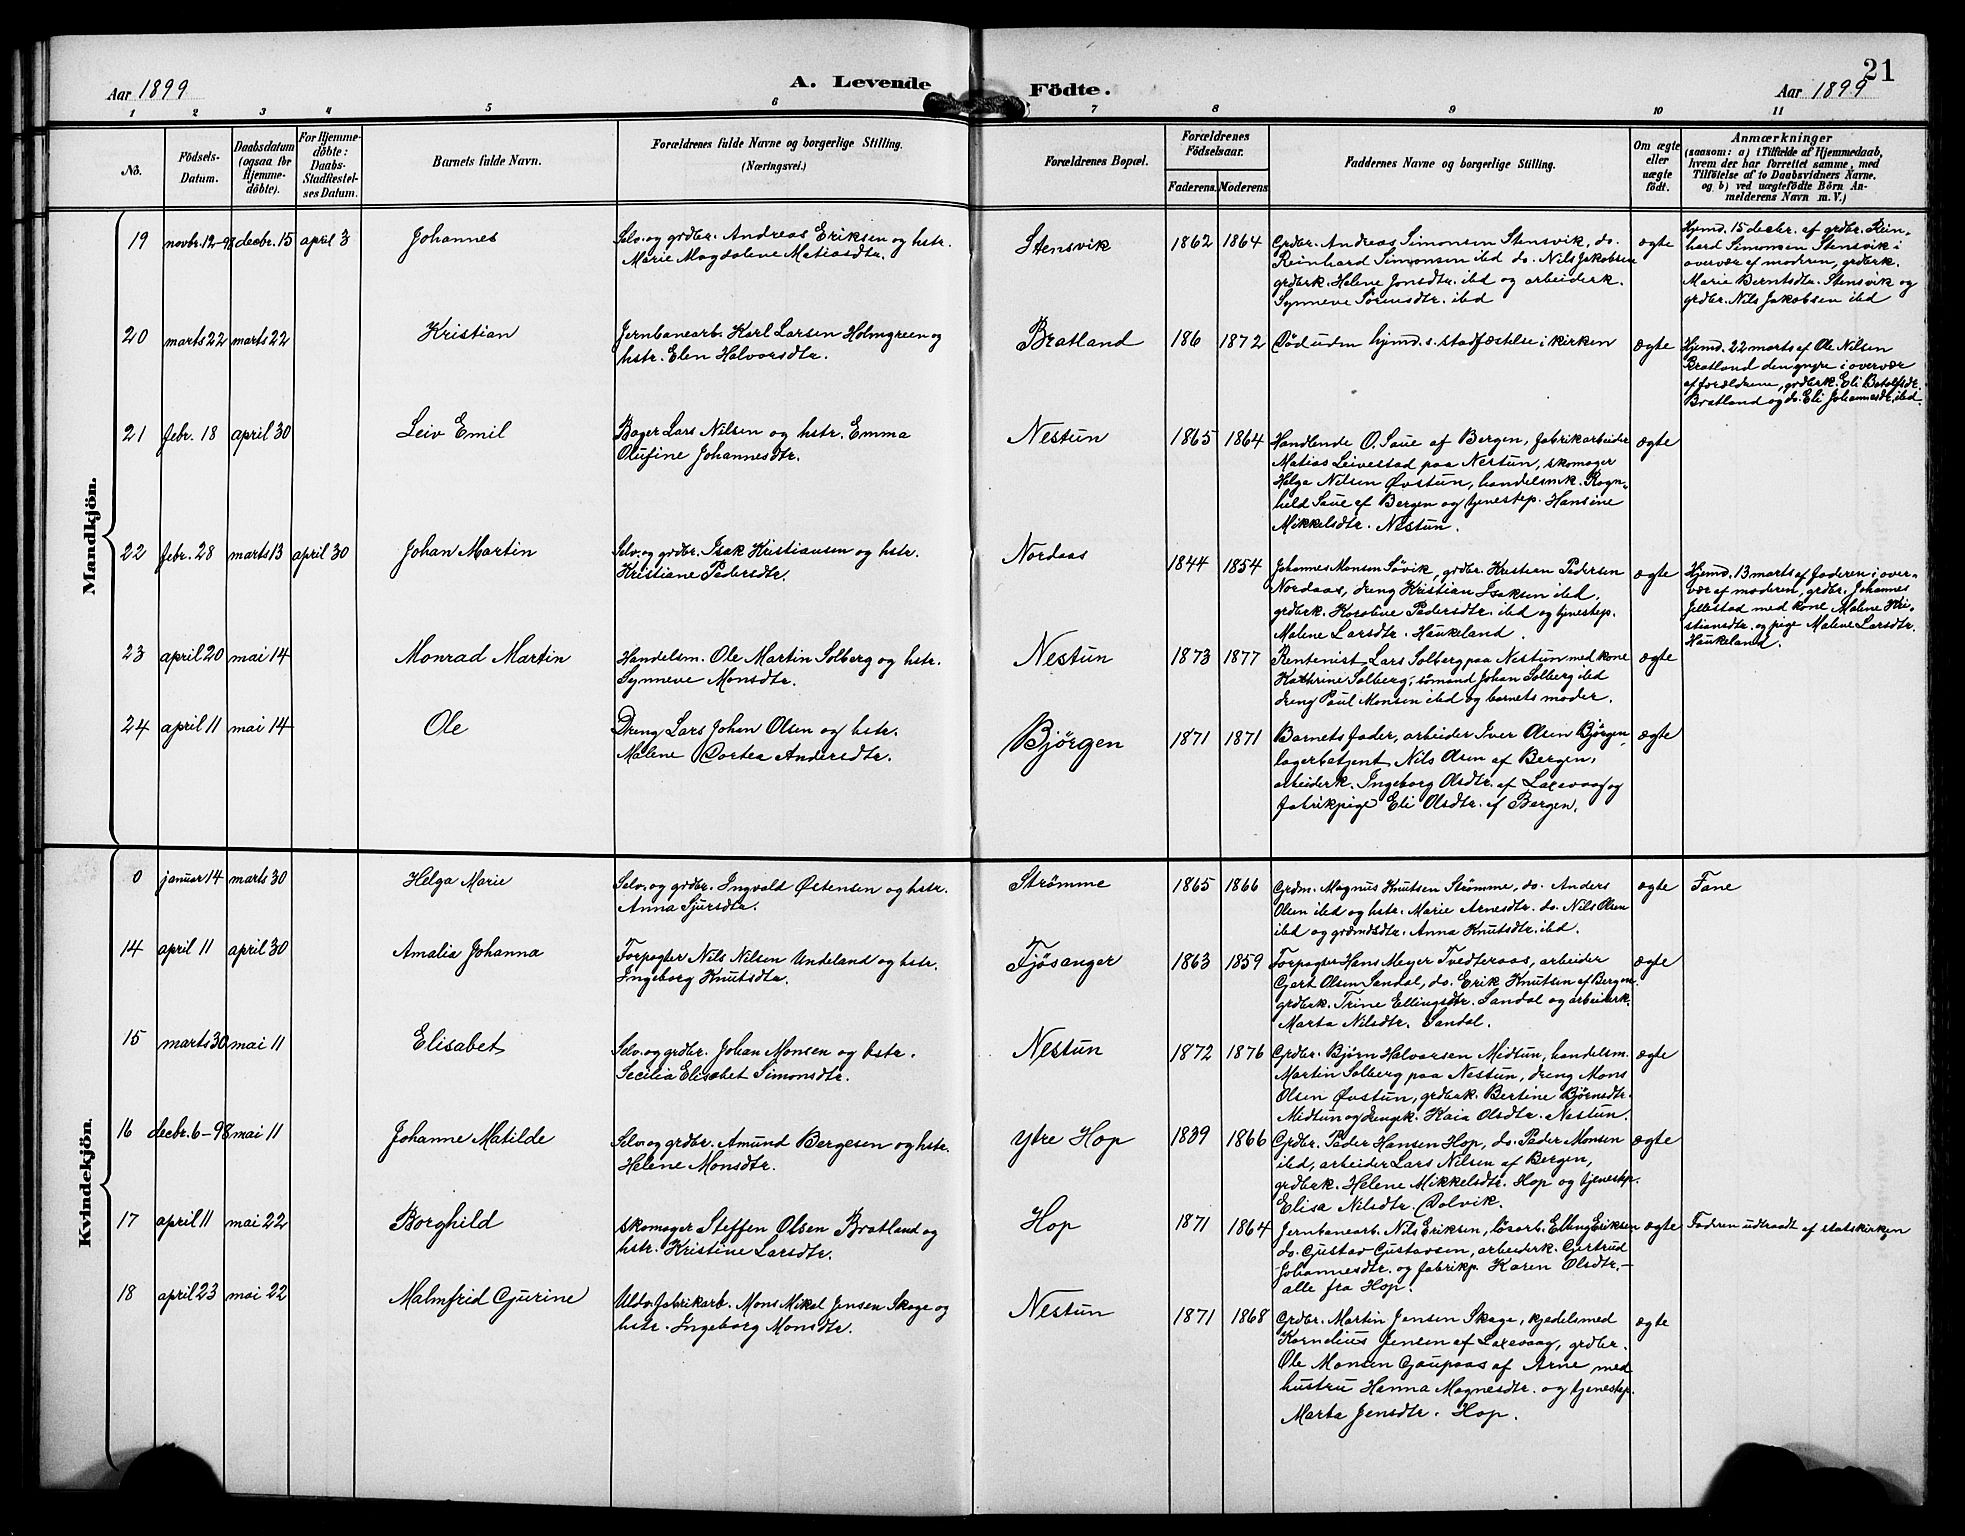 21
Aar 1899
A. Levende Födte.
Aar 1899
1 2 3 4 5 6 7 8 9 10 11
No.
Födsels-Datum.
Daabsdatum (ogsaa for Hjemme-döbte).
For Hjemme-döbte: Daabs-Stadfæstel-ses Datum.
Barnets fulde Navn.
Forældrenes fulde Navne og borgerlige Stilling.
(Næringsvei.)
Forældrenes Bopæl.
Forældrenes Födselsaar.
Faderens. Moderens.
Faddernes Navne og borgerlige Stilling.
Om ægte eller uægte födt.
Anmærkninger
(saasom: a) i Tilfælde af Hjemmedaab,
hvem der har forrettet samme, med
Tilföielse af to Daabsvidners Navne.
og b) ved uægtefödte Börn An-
melderens Navn m. V.)
Mandkjön.
19 novbr. 12-98 decbr. 15 april 3 Johannes
Selv. og grdbr. Andreas Eriksen og hstr.
Marie Magdalene Matiasdtr.
Stensvik 1862 1864
Grdbr. Andreas Simonsen Stensvik, do.
Reinhard Simonsen ibd do. Nils Jakobsen
grdbrk. Helene Jonsdtr. ibd og arbeiderk.
Synneve Sörensdtr. ibd
ægte
Hjemd. 15 decbr. af grdbr. Rein-
hard Simonsen Stensvik i
overvær af moderen, grdbrk.
Marie Berntsdtr. Stensvik og
grdbr. Nils Jakobsen ibd
20 marts 22 marts 22 Kristian
Jernbanearb. Karl Larsen Holmgreen og
hstr. Elen Halvorsdtr.
Bratland 186 1872
Död uden hjemd.s. stadfæstelse i kirken
ægte
Hjemd. 22 marts af Ole Nilsen
Bratland den yngre i overvær
af forældrene, grdbrk. Eli Botolfsdtr.
Bratland og do. Eli Johannesdtr. ibd.
21 febr. 18 april 30 Leiv Emil
Bager Lars Nilsen og hstr. Emma
Olufine Johannesdtr.
Nestun 1865 1864
Handlende O. Saue af Bergen, fabrikarbeider
Matias Leivestad paa Nestun, skomager
Helge Nilsen Øvstun, handelsmk. Ragn-
hild Saue af Bergen og tjenestep. Hansine
Mikkelsdtr. Nestun.
ægte
22 febr. 28 marts 13 april 30 Johan Martin
Selv. og grdbr. Isak Kristiansen og hstr.
Kristiane Pedersdtr.
Nordaas 1844 1854
Johannes Monsen Sövik, grdbr. Kristian Pedersen
Nordaas, dreng Kristian Isaksen ibd.
grdbrk. Karoline Pedersdtr. ibd og tjenestep.
Malene Larsdtr. Haukeland.
ægte
Hjemd. 13 marts af faderen i over-
vær af moderen, grdbr. Johannes
Jellestad med kone Malene Kri-
stiansdtr. og pige Malene Larsdtr.
Haukeland.
23 april 20 mai 14 Monrad Martin
Handelsm. Ole Martin Solberg og hstr.
Synneve Monsdtr.
Nestun 1873 1877
Rentenist Lars Solberg paa Nestun med kone
Kathrine Solberg, sömand Johan Solberg ibd
dreng Paul Monsen ibd og barnets moder.
ægte
24 april 11 mai 14 Ole
Dreng Lars Johan Olsen og hstr.
Malene Dortea Andersdtr.
Björgen 1871 1871
Barnets fader, arbeider Iver Olsen Björgen,
lagerbetjent Nils Olsen af Bergen,
arbeiderk. Ingeborg Olsdtr. af Laxevaag og
fabrikpige Eli Olsdtr. af Bergen.
ægte
Kvindekjön.
0 januar 14 marts 30 Helga Marie
Selv. og grdbr. Ingvald Østensen og hstr.
Anna Sjursdtr.
Strømme 1865 1866
Grdm. Magnus Knutsen Strømme, do. Anders
Olsen ibd og hstr. Marie Arnesdtr. do. Nils Olsen
ibd og grdmdsdtr. Anna Knutsdtr. ibd.
ægte Fane
14 april 11 april 30 Amalia Johanna
Forpagter Nils Nilsen Undeland og hstr.
Ingeborg Knutsdtr.
Fjösanger 1863 1859
Forpagter Hans Meyer Tvedteraas, arbeider
Gert Olsen Sandal, do. Erik Knutsen af Bergen,
grdbrk. Trine Ellingsdtr. Sandal og arbeiderk.
Marta Nilsdtr. Sandal.
ægte
15 marts 30 mai 11 Elisabet
Selv. og grdbr. Johan Monsen og hstr.
Secilia Elisabet Simonsdtr.
Nestun 1872 1876
Grdbr. Bjørn Halvorsen Midtun, handelsm.
Martin Solberg paa Nestun, dreng Mons
Olsen Øvstun, grdbrk. Bertine Bjørnsdtr.
Midtun og drengk. Kaia Olsdtr. Nestun.
ægte
16 decbr. 6-98 mai 11 Johanne Matilde
Selv. og grdbr. Amund Bergesen og hstr.
Helene Monsdtr.
Ytre Hop 1839 1866
Grdbr. Peder Hansen Hop, do. Peder Monsen
ibd, arbeider Lars Nilsen af Bergen,
grdbrk. Helene Mikkelsdtr. Hop og tjenestep.
Elisa Nilsdtr. Dolvik.
ægte
17 april 11 mai 22 Borghild
Skomager Steffen Olsen Bratland og
hstr. Kristine Larsdtr.
Hop 1871 1864
Jernbanearb. Nils Eriksen, løsarb. Elling Eriksen
do. Gustav Gustavsen, arbeiderk. Gjertrud
Johannesdtr. og fabrikp. Karen Olsdtr.-
alle fra Hop.
ægte Fadren udtraadt af statskirken
18 april 23 mai 22 Malmfrid Gjurine
Uldv.fabrikarb. Mons Mikal Jensen Skage og
hstr. Ingeborg Monsdtr.
Nestun 1871 1868
Grdbr. Martin Jensen Skage, kjedelsmed
Kornelius Jensen af Laxevaag, grdbr.
Ole Monsen Gaupaas af Arne med
hustru Hanna Magnesdtr. og tjenestep.
Marta Jensdtr. Hop.
ægte